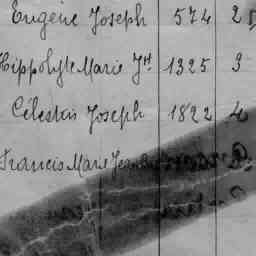 Eugène Joseph 574 25
Hippolyte Marie Jh 1325 3
Célestin Joseph 1822 4
Francis Marie Jean